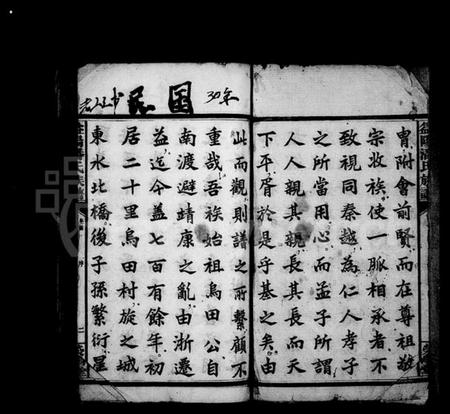 民国 30年
胄附會前賢而在尊祖敬
宗收族使一脈相承者不
致視同秦越為仁人孝子
之所當用心而孟子所謂
人人親其親長其長而天
下平胥於是乎基之矣由
此而觀則譜之所繫顧不
重哉吾族始祖烏田公自
南渡避靖康之亂由浙遷
益迄今益七百有餘年初
居二十里烏田村旋之城
東水北橋後子孫繁衍星